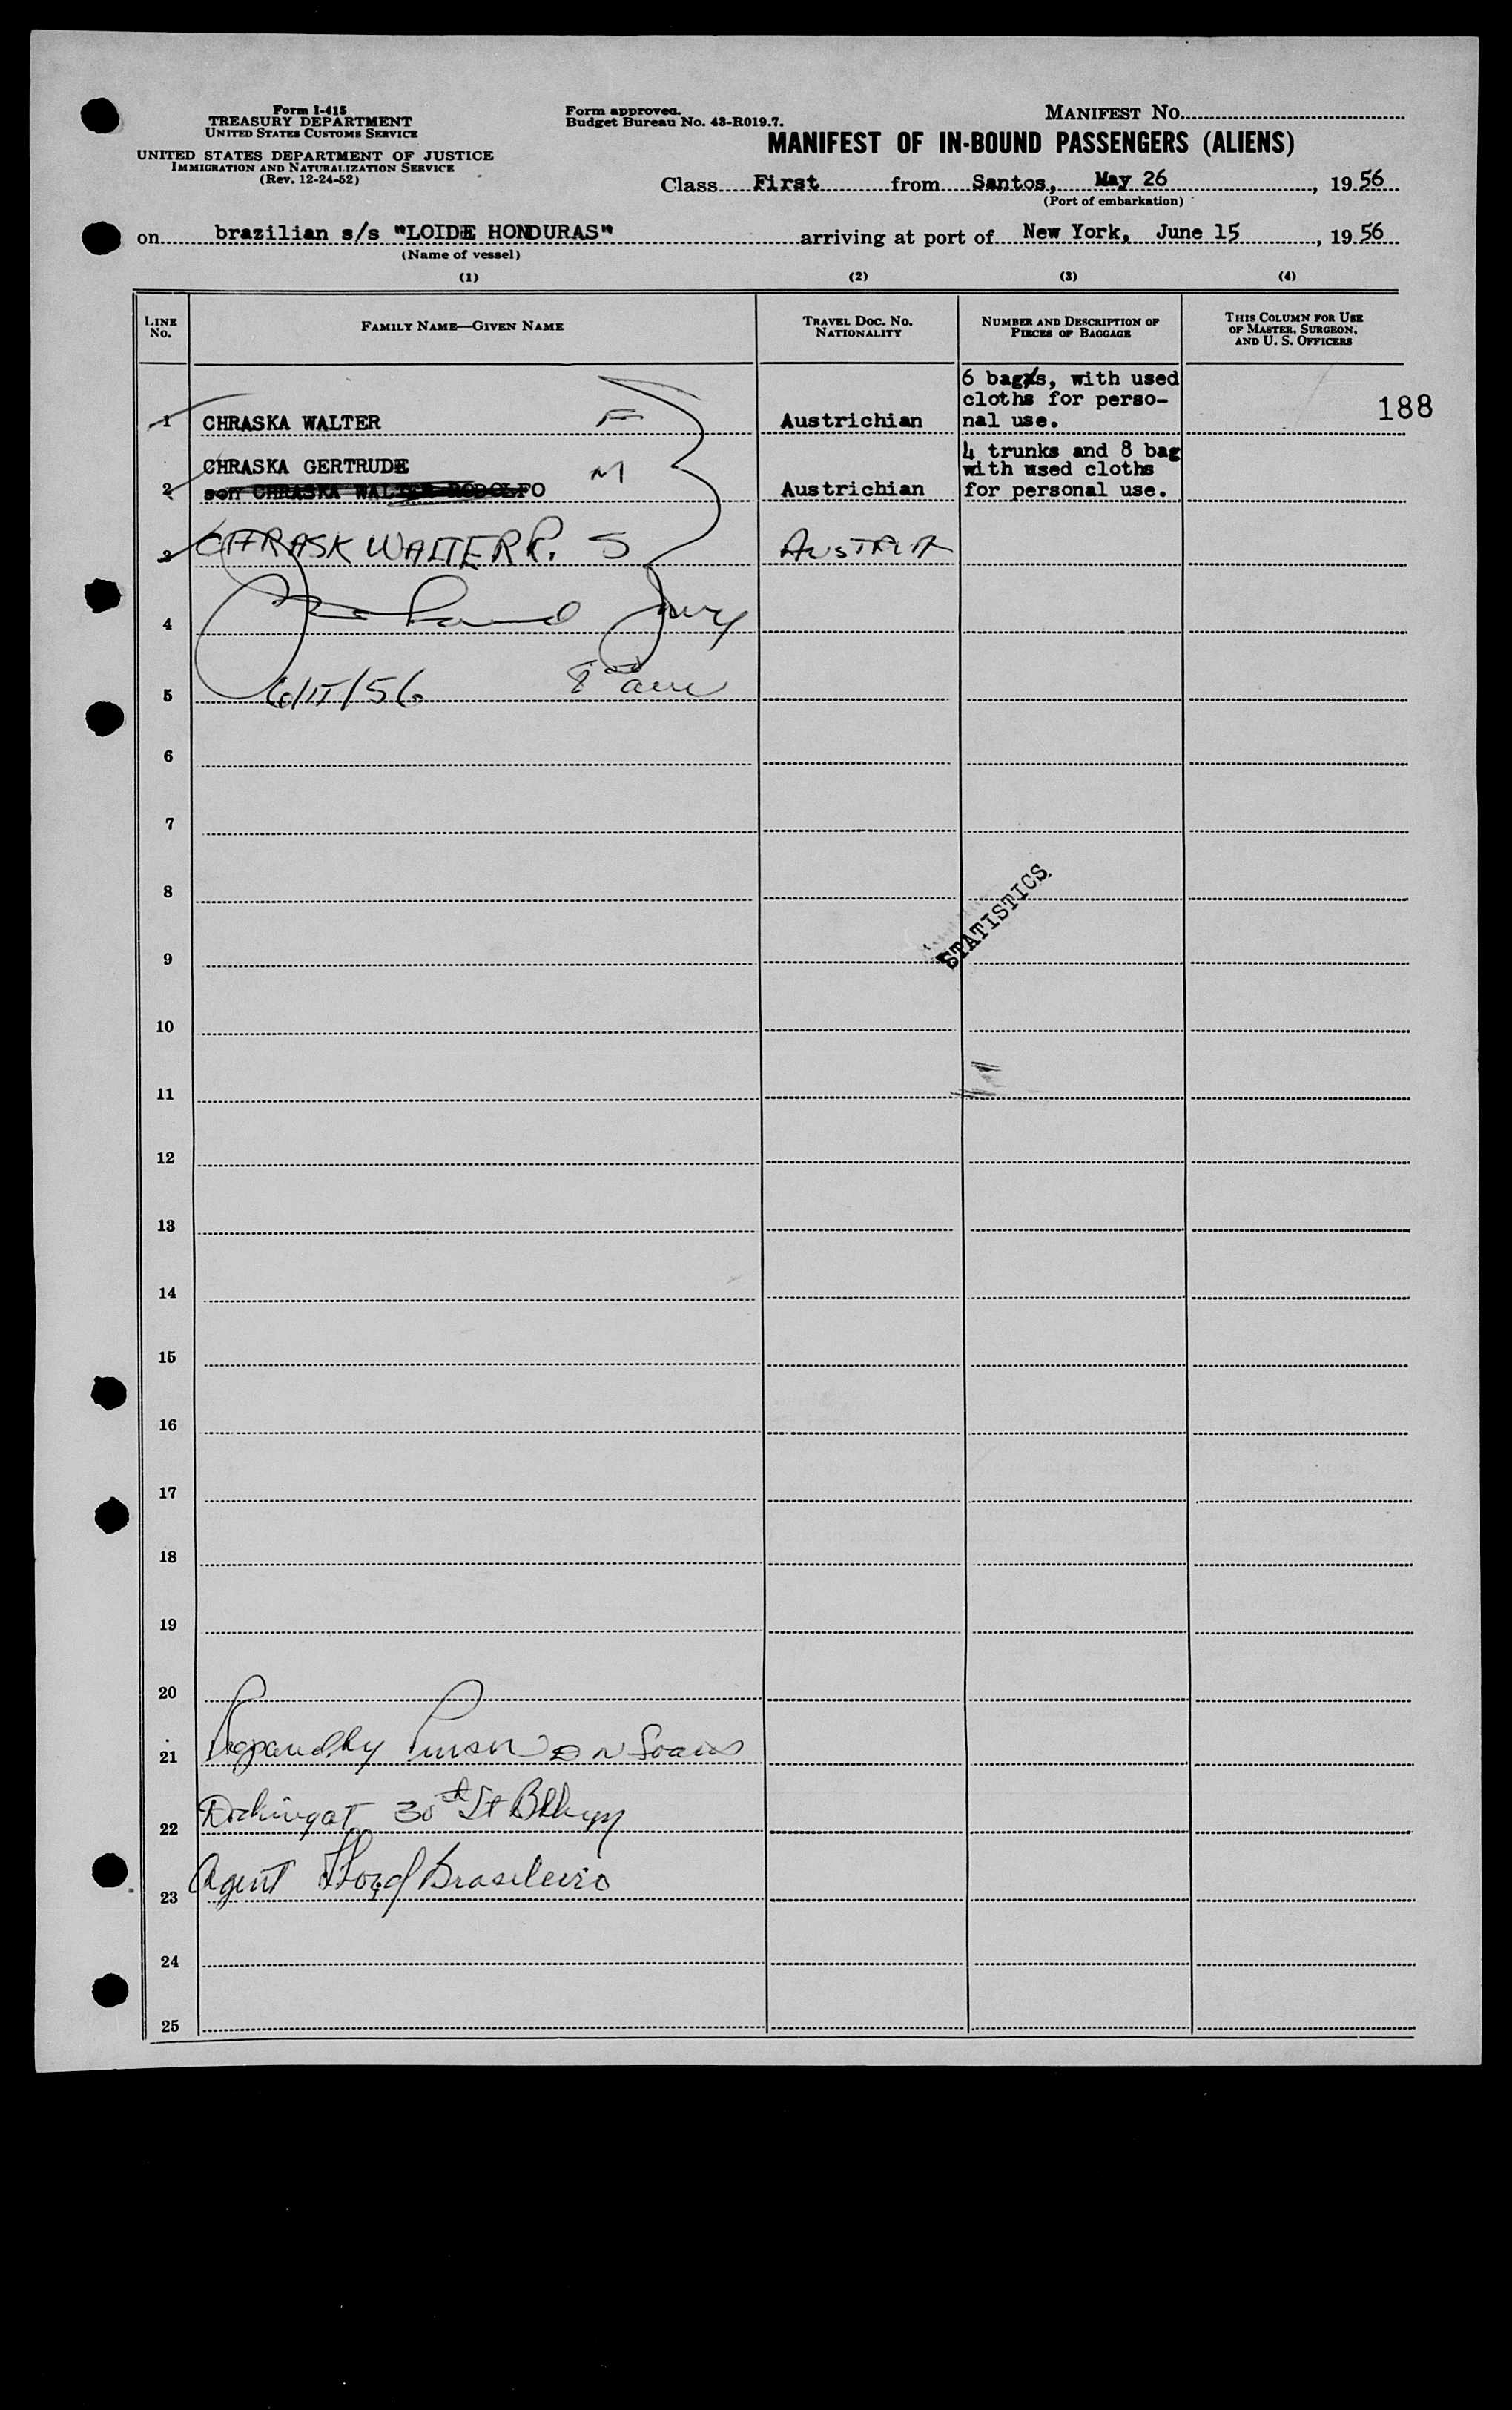 Form I-415
TREASURY DEPARTMENT
UNITED STATES CUSTOMS SERVICE
UNITED STATES DEPARTMENT OF JUSTICE
IMMIGRATION AND NATURALIZATION SERVICE
(Rev. 12-24-52)
Form approved.
Budget Bureau No. 43-R019.7.
MANIFEST NO.
MANIFEST OF IN-BOUND PASSENGERS (ALIENS)
Class First from Santos, May 26, 1956
(Port of embarkation)
on brazilian s/s "LOIDE HONDURAS" arriving at port of New York, June 15, 1956
(Name of vessel)
(1) (2) (3) (4)
LINE No.
FAMILY NAME—GIVEN NAME
TRAVEL DOC. NO. NATIONALITY
NUMBER AND DESCRIPTION OF PIECES OF BAGGAGE
THIS COLUMN FOR USE OF MASTER, SURGEON, AND U. S. OFFICERS
6 bags, with used
cloths for perso-
1 CHRASKA WALTER F Austrichian nal use. 188
4 trunks and 8 bag
CHRASKA GERTRUDE M with used cloths
2 son CHRASKA WALTER RODOLFO Austrichian for personal use.
3 CHRASK WALTER R. S AUSTRIA
4
5 6/15/56
6
7
8
STATISTICS
9
10
11
12
13
14
15
16
17
18
19
20
21
22 Docking at 30th St Bklyn
23 Agent Lloyd Brasileiro
24
25